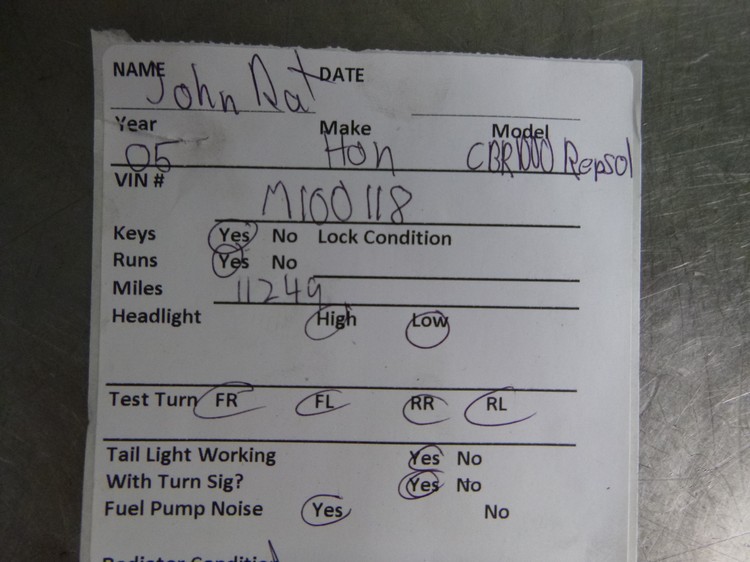 NAME John Rat DATE
Year Make Model
05 Hon CBR1000 Repsol
VIN #
M100118
Keys Yes No Lock Condition
Runs Yes No
Miles 11249
Headlight High Low
Test Turn FR FL RR RL
Tail Light Working Yes No
With Turn Sig? Yes No
Fuel Pump Noise Yes No
Radiator Condition